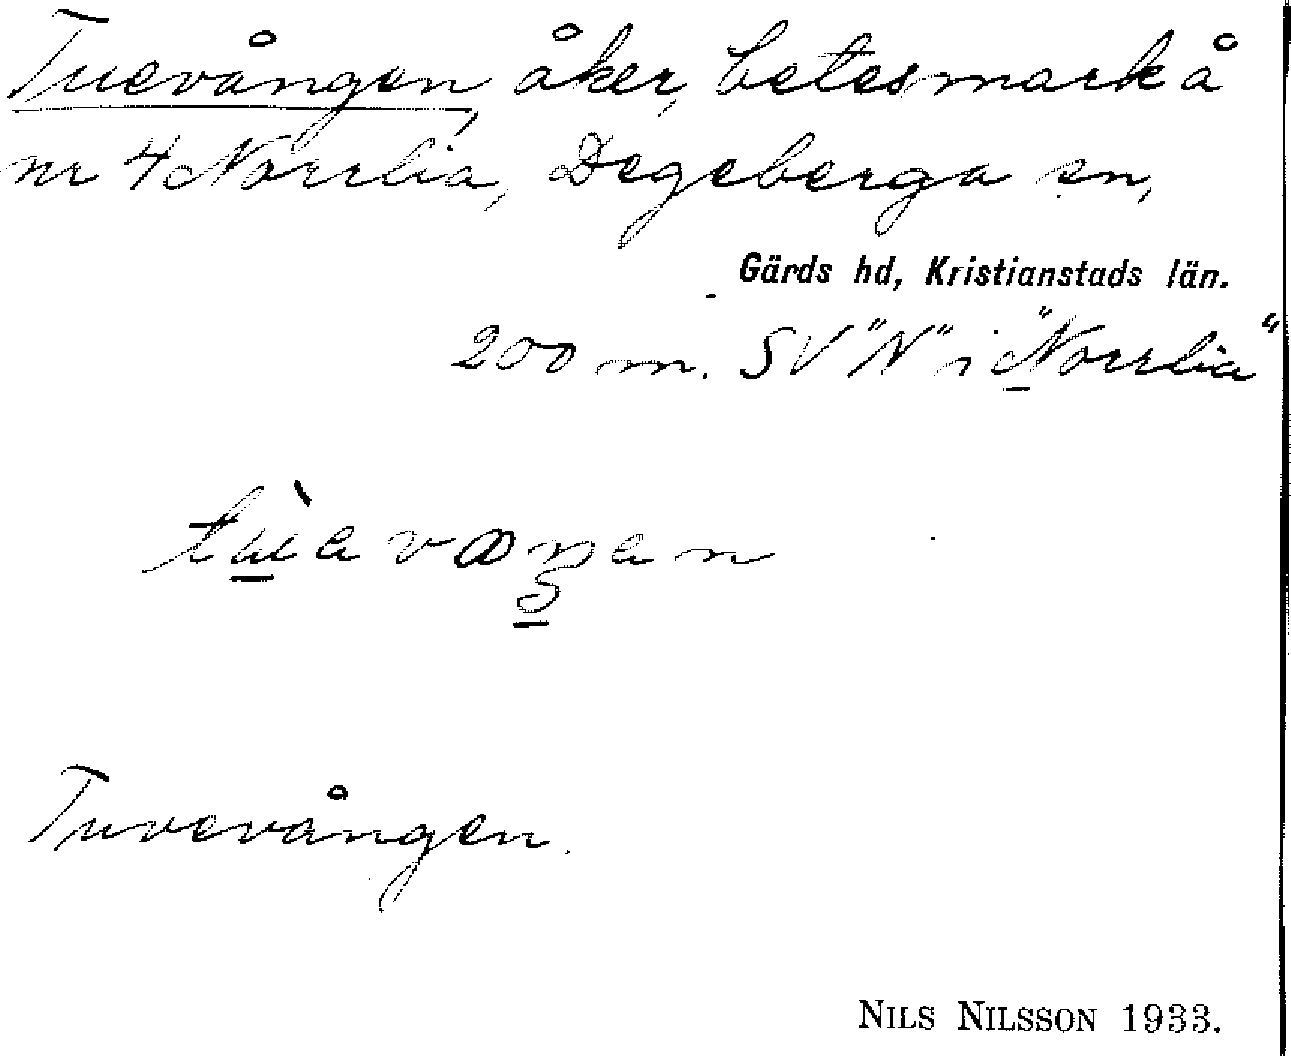 Tuevången, åker, betesmark å
nr 4 Norrlia, Degeberga sn,
Gärds hd, Kristianstads län.
200 m. SV "N" i "Norrlia"
Tuvevången.
NILS NILSSON 1933.